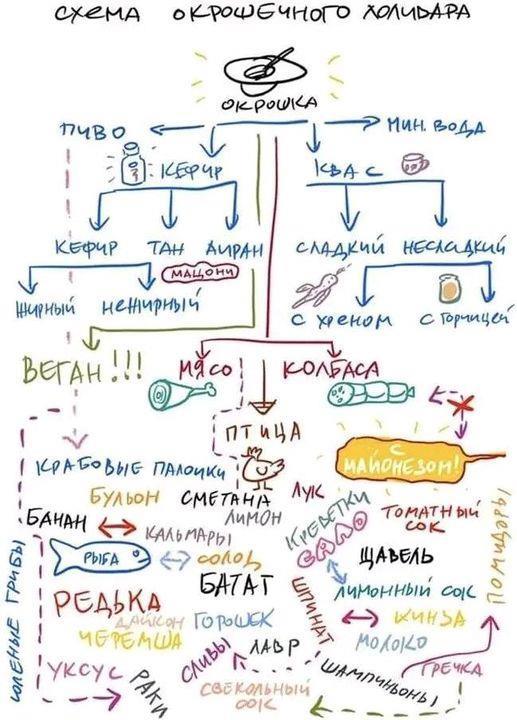 СХЕМА ОКРОШЕЧНОГО ХОЛИВАРА
ОКРОШКА
ПИВО
МИН. ВОДА
КЕФИР
КВАС
КЕФИР ТАН АЙРАН
МАЦОНИ
СЛАДКИЙ НЕСЛАДКИЙ
ЖИРНЫЙ НЕЖИРНЫЙ
С ХРЕНОМ С ГОРЧИЦЕЙ
ВЕГАН!!!
МЯСО
КОЛБАСА
ПТИЦА
С МАЙОНЕЗОМ!
КРАБОВЫЕ ПАЛОЧКИ
БУЛЬОН
СМЕТАНА
ЛУК
ЛИМОН
КРЕВЕТКИ
ТОМАТНЫЙ
СОК
БАНАН
КАЛЬМАРЫ
САЛО
ЩАВЕЛЬ
РЫБА
СОЛОД
БАТАТ
ЛИМОННЫЙ СОК
ПОМИДОРЫ
РЕДЬКА
ДАЙКОН
ГОРОШЕК
ШПИНАТ
КИНЗА
ЧЕРЕМША
МОЛОКО
СОЛЕНИЕ ГРИБЫ
УКСУС
РАКИ
СЛИВЫ
ЛАВР
ШАМПИНЬОНЫ
ГРЕЧКА
СВЕКОЛЬНЫЙ
СОК